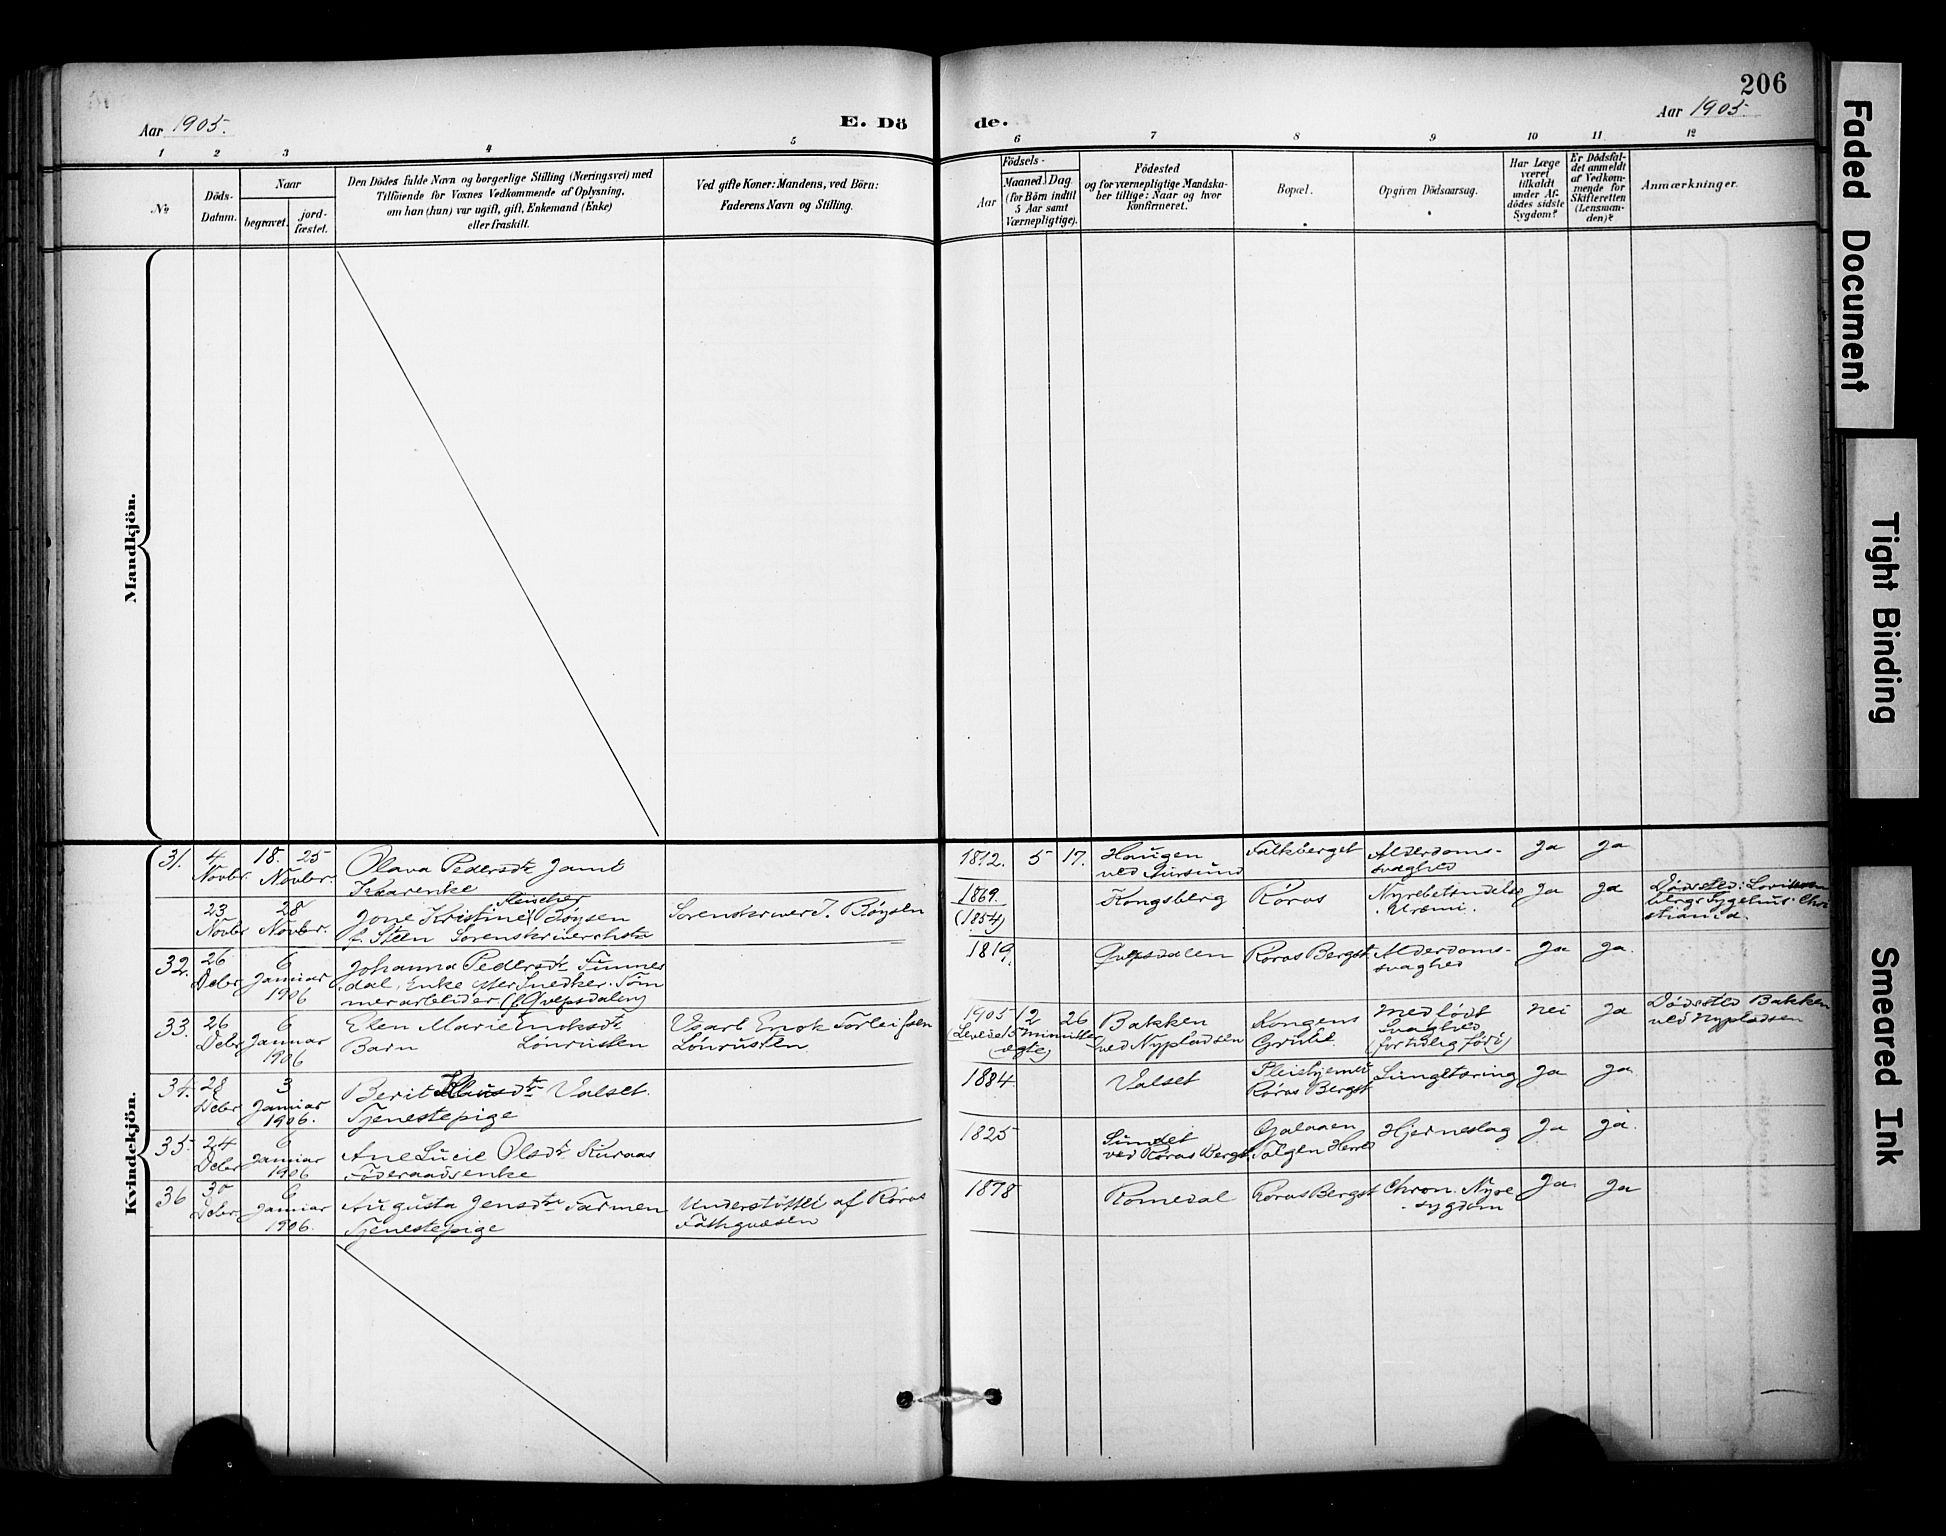 206
Aar 1905.
E. Dö
de.
Aar 1905.
1 2 3 4 5 6 7 8 9 10 11 12
№
Döds-
Datum.
Naar
begravet.
jord-
fæstet.
Den Dödes fulde Navn og borgerlige Stilling (Næringsvei) med
Tilföiende for Voxnes Vedkommende af Oplysning,
om han (hun) var ugift, gift, Enkemand (Enke)
eller fraskilt.
Ved gifte Koner: Mandens, ved Börn:
Faderens Navn og Stilling.
Födsels-
Aar
Maaned. Dag
(for Börn indtil
5 Aar samt
Værnepligtige).
Födested
og for værnepligtige Mandska-
ber tillige: Naar og hvor
konfirmeret.
Bopæl.
Opgiven Dödsaarsag.
Har Læge
været
tilkaldt
under Af-
dödes sidste
Sygdom?
Er Dödsfal-
det anmeldt
af Vedkom-
mende for
Skifteretten
(Lensman-
den)?
Anmærkninger.
Mandkjön.
Kvindekjön.
31.
4
Novbr.
18.
25
Novbr.
Olava Pedersdt. Jamt
Kaarenke
1812.
5
17.
Haugen
ved Aursund
Falkberget
Alderdoms-
svaghed
Ja
Ja
23
Novbr
28
Novbr.
Fleischer
Jone Kristine Böysen
f. Steen Sorenskriver
Sorenskriver J. Böysen
1869.
(1854)
Kongsberg
Röros
Nyrebetændelse
Uræmi.
Ja
Ja
Dödssted: Lovisen
bergs Sygehus Chri
stiania.
32.
26
Debr
6
Januar
1906
Johanna Pedersdt. Finnes
dal, Enke efter Snedker. Töm
merarbeider (f. Qvepsdalen)
1819.
Qvepsdalen
Röros Bergst
Alderdoms-
svaghed
Ja
Ja.
33.
26
Debr
6
Januar
1906
Elen Marie Enoksdt.
Barn Lönrusten
Vsarb Enok Torleifsen
Lönrusten
1905
12
26
(Levede 15 minutter
Bakken
ved Nypladsen
Kongens
Grube
Medfödt
Svaghed
(fortidlig född)
nei
Ja
Dödssted Bakken
ved Nypladsen
34.
28
Debr
3
Januar
1906.
Berit Klausdtr Valset.
Tjenestepige
1884
Valset
Pleiehjemmet
Röros Bergst
Lungetæring
Ja
Ja
35
24
Debr
6
Januar
1906
Ane Lucie Olsdt. Kuraas
Föderaadsenke
1825
Sundet
ved Röros Bergst
Galaaen
Tolgen Herred
Hjerneslag
Ja
Ja.
36
30
Debr
6
Januar
1906.
Augusta Jensdtr Farmen
Tjenestepige
Understöttet af Röros
Fattigvæsen
1878
Romedal
Röros Bergst
Chron. Nyre-
sygdom
Ja
Ja
Faded Document
Tight Binding
Smeared Ink